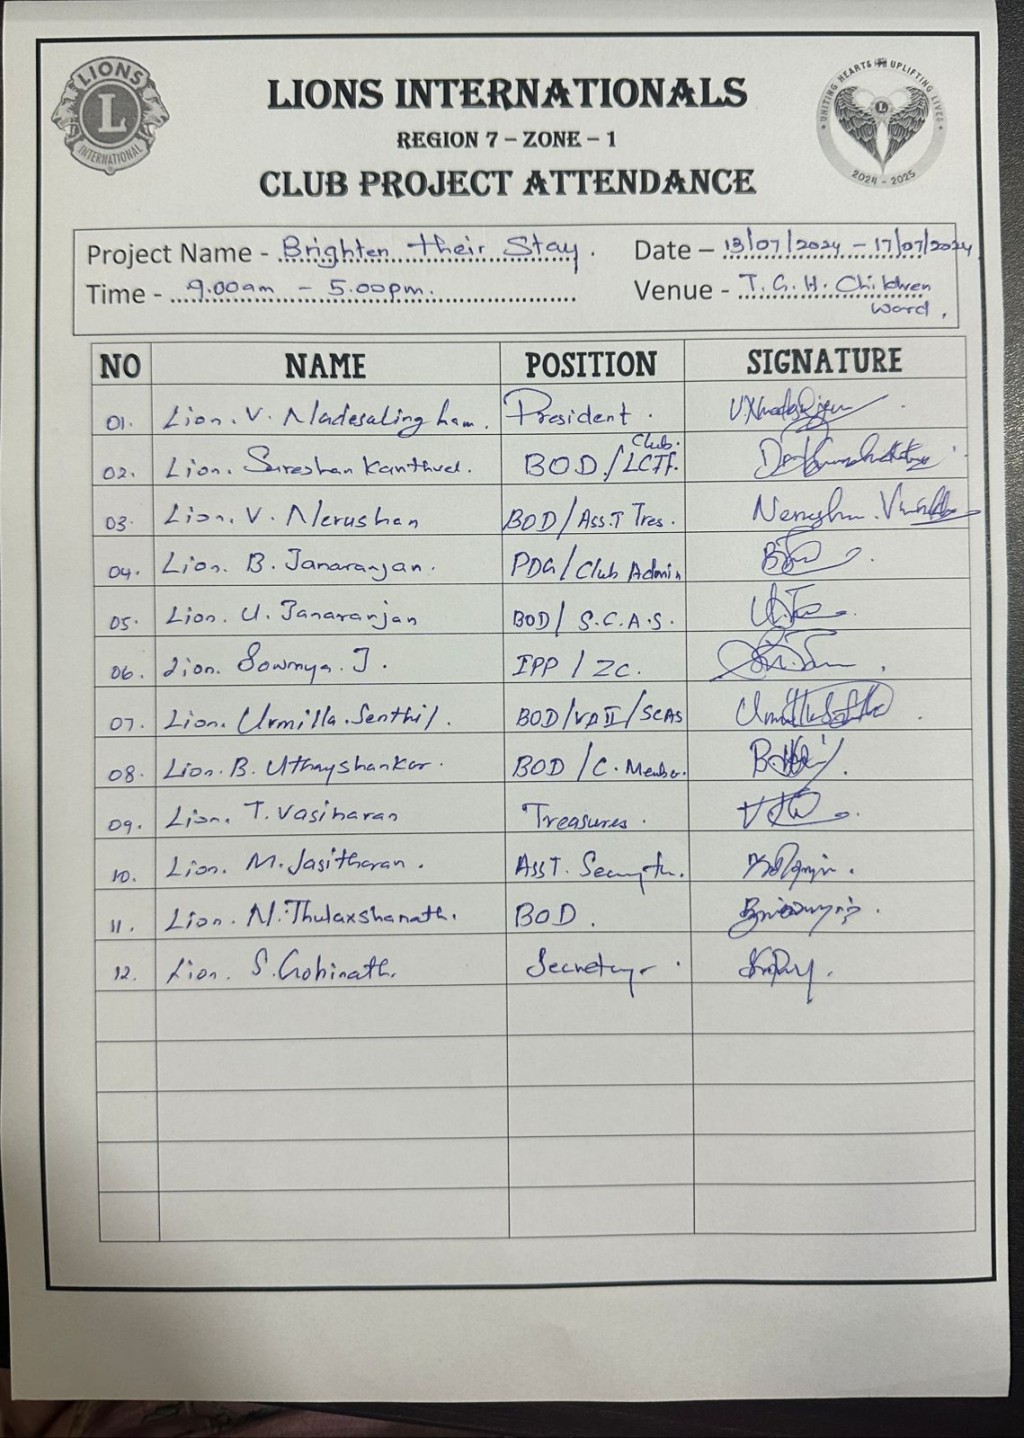 LIONS INTERNATIONAL
L
UNITING HEARTS UPLIFTING LIVES
2024 - 2025
LIONS INTERNATIONALS
REGION 7 – ZONE – 1
CLUB PROJECT ATTENDANCE
Project Name - Brighten Their Stay. Date – 13/07/2024 – 17/07/2024
Time - 9.00am – 5.00pm. Venue - T.G.H. Children
Ward,
NO NAME POSITION SIGNATURE
01. Lion. V. Madesalingham. President.
02. Lion. Sureshan Kanthvel. BOD/Club. LCIF.
03. Lion. V. Nerushan BOD/Ass.T Tres.
04. Lion. B. Janaranjan. PDG/Club Admin
05. Lion. U. Janaranjan BOD/S.C.A.S.
06. Lion. Sowmya. J. IPP/ZC.
07. Lion. Urmilla. Senthil. BOD/VPII/SCAS
08. Lion. B. Uthayshankar. BOD/C. Member.
09. Lion. T. Vasiharan Treasures.
10. Lion. M. Jasitharan. AssT.
11. Lion. N. Thulaxshanath. BOD.
12. Lion. S. Gobinath. Secretary.